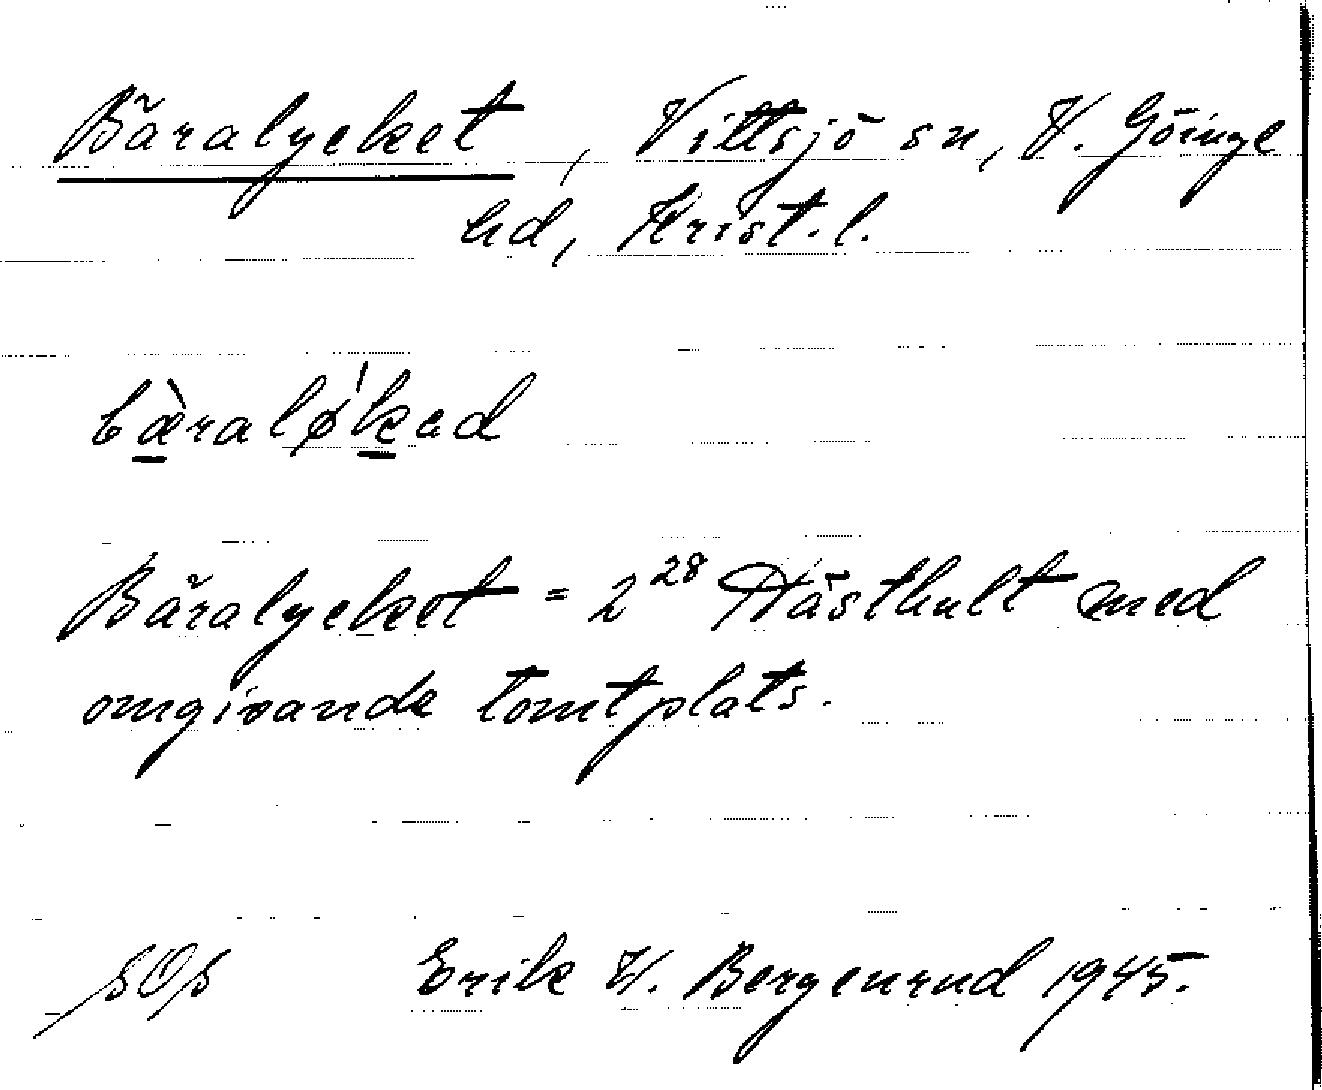 Bäralycket, Vittsjö sn, V. Göinge
hd, Krist. l.
bæ̀ralø'kad
Bäralycket = 2²⁸ Hästhult med
omgivande tomtplats.
SOS Erik W. Bergenrud 1945.